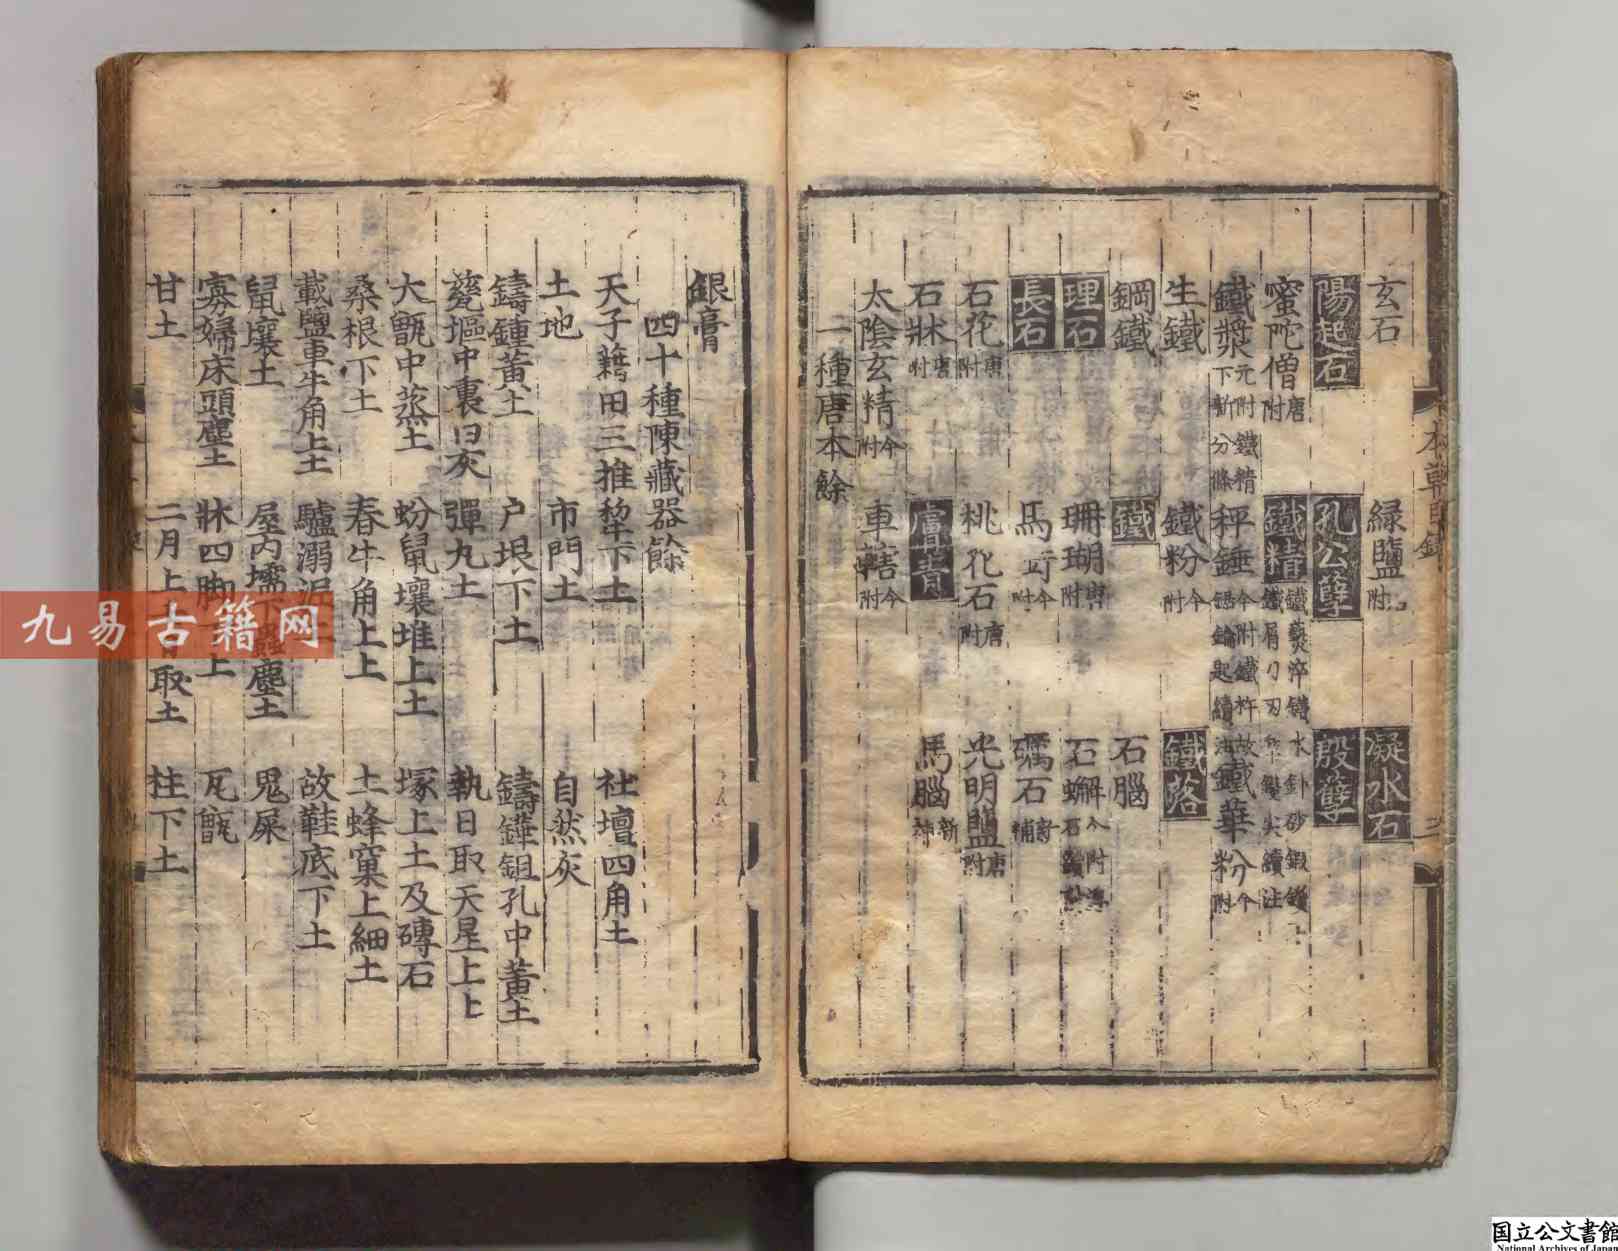 玄石 綠鹽 附 凝水石
陽起石 孔公孽 殷孽
蜜陀僧 唐附 鐵精
鐵漿 元附 秤錘 今附 鐵華粉 今附
生鐵 鐵粉 今附 鐵落
鋼鐵 鐵 石腦
理石 珊瑚 唐附 石蟹
長石 馬 今附 礪石
石花 唐附 桃花石 唐附 光明鹽 唐附
石牀 唐附 膚青 馬腦 新
太陰玄精 今附 車轄 今附
一種唐本餘
銀膏
四十種陳藏器餘
天子藉田三推犂下土 社壇四角土
土地 市門土 自然灰
鑄鍾黃土 户垠下土 鑄鏵鉏孔中黃土
甕塸中裏臼灰 彈丸土 執日取天星上土
大甑中蒸土 蚡鼠壤堆上土 塚上土及磚石
桑根下土 春牛角上土 土蜂窠上細土
載鹽車牛角上土 驢溺泥 故鞋底下土
鼠壤土 屋内壖下 塵土 鬼屎
寡婦床頭塵土 牀四脚 土 瓦甑
甘土 二月上 取土 柱下土
本草
九易古籍网
国立公文書館
National Archives of Japan